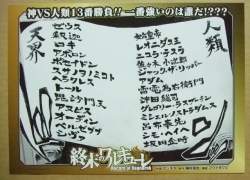 神VS人類13番勝負!!一番強いのは誰だ!???
天界
ゼウス
釈迦
ロキ
アポロン
ポセイドン
スサノヲノミコト
ヘラクレス
トール
毘沙門天
オーディン
ベルゼブブ
シヴァ
人類
始皇帝
レオニダス王
ニコラ・テスラ
佐々木小次郎
ジャック・ザ・リッパー
アダム
雷電為右衛門
沖田総司
グリゴリー・ラスプーチン
ミシェル・ノストラダムス
呂布奉先
シモ・ヘイヘ
坂田金時
終末のワルキューレ
Record of Ragnarok